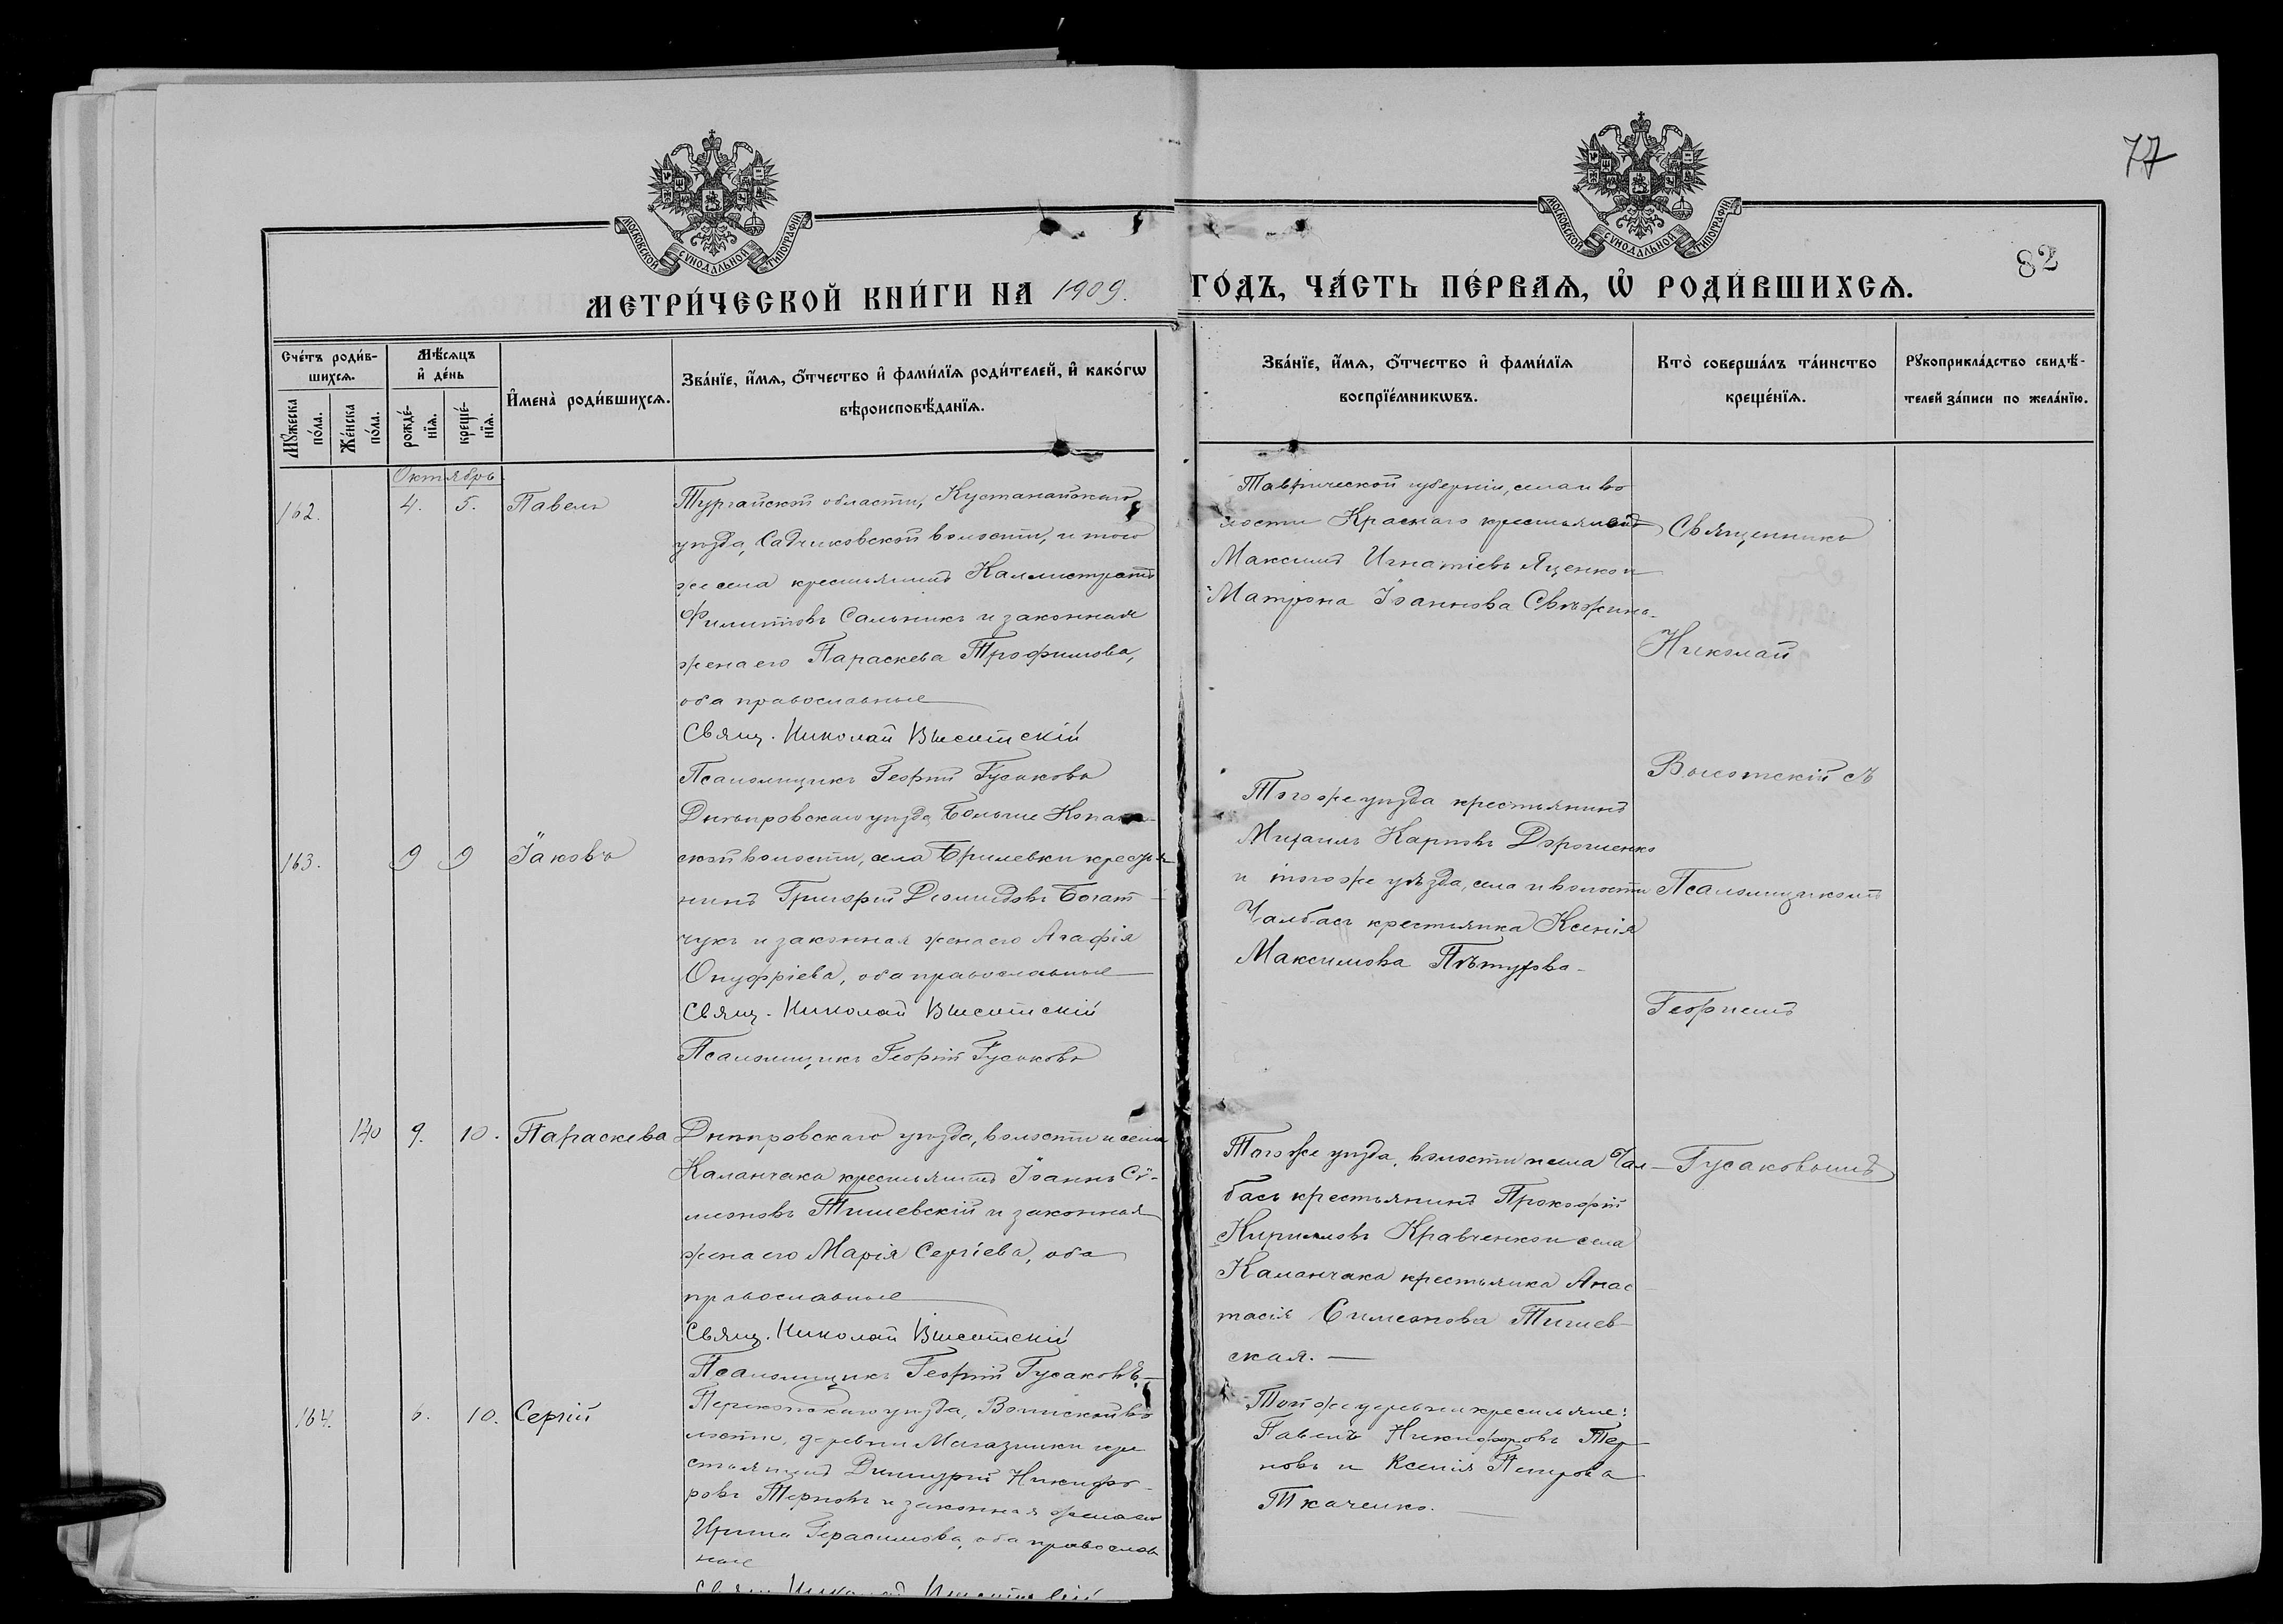 77
82
МОСКОВСКОЙ СѴНОДАЛЬНОЙ ТИПОГРАФІИ
МОСКОВСКОЙ СѴНОДАЛЬНОЙ ТИПОГРАФІИ
МЕТРИ́ЧЕСКОЙ КНИ́ГИ НА 1909. ГО́ДЪ, ЧА́СТЬ ПЕ́РВАѦ, Ѡ҆ РОДИ́ВШИХСѦ.
Сче́тъ роди́в-
шихсѧ.
Мꙋ́жеска по́ла.
Же́нска по́ла.
Мѣ́сѧцъ и҆ де́нь
рожде́-нїѧ.
креще́-нїѧ.
И҆мена̀ роди́вшихсѧ.
Зва́нїе, и҆́мѧ, ѻ҆́тчество и҆ фами́лїѧ роди́телей, и҆ како́гѡ
вѣроисповѣ́данїѧ.
Зва́нїе, и҆́мѧ, ѻ҆́тчество и҆ фами́лїѧ
воспрїе́мникѡвъ.
Кто̀ соверша́лъ та́инство
креще́нїѧ.
Рꙋкоприкла́дство свидѣ́-
телей за́писи по жела́нїю.
Октябрь
162.
4.
5.
Павелъ
Тургайской области, Кустанайскаго
уѣзда, Садчиковской волости, и того
же села крестьянинъ Каллистратъ
Филиповъ Сальникъ и законная
жена его Параскева Трофимова,
оба православные
Свящ. Николай Высотскій
Псаломщикъ Георгій Гусаковъ
Таврической губерніи, села и во
лости Краснаго крестьяне
Максимъ Игнатіевъ Яценко и
Матрона Іоаннова
Священникъ
Николай
Высотскій съ
Псаломщикомъ
Георгіемъ
Гусаковымъ
163.
9
9
Іаковъ
Днѣпровскаго уѣзда, Больше Копан-
ской волости, села Брилевки крестья-
нинъ Григорій Діомидовъ Богат-
чукъ и законная жена его Агафія
Онуфріева, оба православные
Свящ. Николай Высотскій
Псаломщикъ Георгій Гусаковъ
Того же уѣзда крестьянинъ
Михаилъ Карповъ Дорошенко
и того же уѣзда, села и волости
Чалбасъ крестьянка Ксенія
Максимова
140
9.
10.
Параскева
Днѣпровскаго уѣзда, волости и села
Каланчака крестьянинъ Іоаннъ Сѵ-
меоновъ Тишевскій и законная
жена его Марія Сергіева, оба
православные
Свящ. Николай Высотскій
Псаломщикъ Георгій Гусаковъ
Того же уѣзда, волости и села Чал-
басъ крестьянинъ Прокофій
Кирилловъ Кравченко и села
Каланчака крестьянка Анас
тасія Симеонова Тишев-
ская.
164.
6.
10.
Сергій
Перекопскаго уѣзда, Воинской во
лости, деревни Магазинки кре
стьянинъ Димитрій Никифо-
ровъ Терновъ и законная жена его
Ирина Герасимова, оба православ
ные
Свящ. Николай Высотскій
Той же деревни крестьяне:
Павелъ Никифоровъ Тер-
новъ и Ксенія Петрова
Ткаченко.